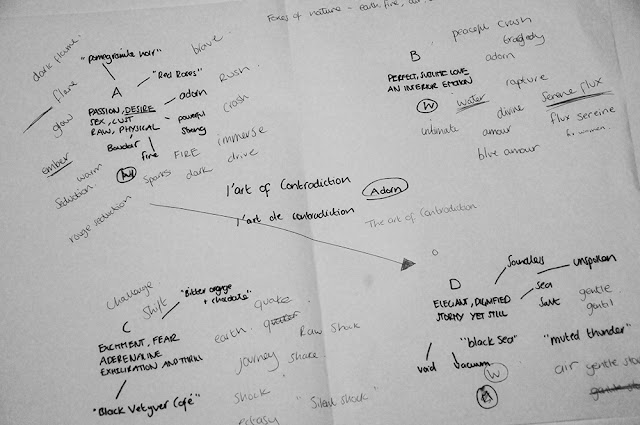 Foxes of nature - earth, fire,
dark flame
"pomegranate noir"
brave
flare
A
"Red Roses"
Rush
PASSION, DESIRE
adorn
glow
SEX, LUST
crash
RAW, PHYSICAL
powerful
strong
Boudoir
immerse
ember
warm
fire
FIRE
drive
seduction
W
Sparks
dark
rouge seduction
peaceful crash
B
tragedy
PERFECT, SUBLIME LOVE
adorn
AN INTERIOR EMOTION
rapture
W
water
serene flux
intimate
divine
flux sereine
amour
for women
blue amour
l'art of Contradiction
Adorn
l'art de contradiction
The art of Contradiction
challenge
shift
"Bitter orange
+ chocolate"
C
quake
EXCITMENT, FEAR
earth
quaker
ADERENALINE
Raw Shock
EXHILIRATION AND THRILL
journey
shake
"Black Vetyver Café"
shock
"Silent shock"
ecstasy
D
Soundless
unspoken
ELEGANT, DIGNIFIED
sea
gentle
STORMY YET STILL
Salt
gentil
"black sea"
"muted thunder"
void
Vacuum
W
air
gentle